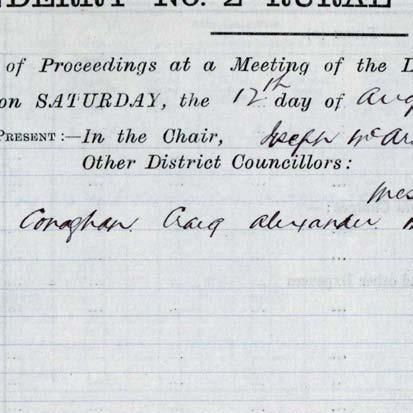 DERRY NO. 2 RURAL
of Proceedings at a Meeting of the
on SATURDAY, the 12th day of Aug
PRESENT:—In the Chair, Joseph
Other District Councillors:
Conaghan. Craig Alexander.